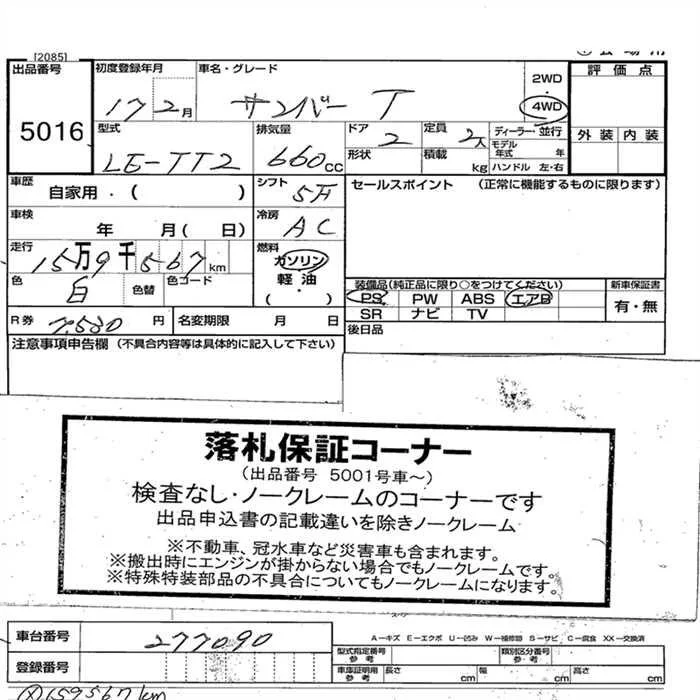 [2085]
出品番号 初度登録年月 車名・グレード 2WD 評価点
5016 17 2月 サンバー T 4WD 外装 内装
型式 排気量 ドア 定員 ディーラー・並行
LE-TT2 660cc 2 2人 モデル年式 年
形状 積載 kg ハンドル 左・右
車歴 自家用・( ) シフト 5F セールスポイント (正常に機能するものに限ります)
車検 年 月( 日) 冷房 AC
走行 15万9千567km 燃料 ガソリン・軽油( )
色 白 色替 色コード 装備品(純正品に限り○をつけてください) 新車保証書
PS PW ABS エアB 有・無
SR ナビ TV
R券 7,530円 名変期限 月 日 後日品
注意事項申告欄(不具合内容等は具体的に記入して下さい)
落札保証コーナー
(出品番号 5001号車~)
検査なし・ノークレームのコーナーです
出品申込書の記載違いを除きノークレーム
※不動車、冠水車など災害車も含まれます。
※搬出時にエンジンが掛からない場合でもノークレームです。
※特殊特装部品の不具合についてもノークレームになります。
車台番号 277090 A-キズ E-エクボ U-凹み W-補修跡 S-サビ C-腐食 XX-交換済
型式指定番号 参考 類別区分番号 参考
登録番号 車庫証明用 参考 長さ cm 幅 cm 高さ cm
159567km